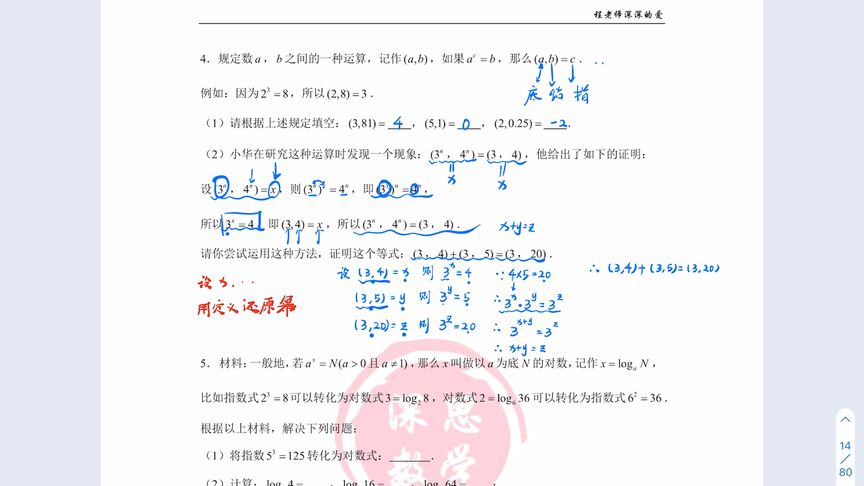 程老师深深的爱
4．规定数a，b之间的一种运算，记作(a,b)，如果a^c=b，那么(a,b)=c．
底 结 指
例如：因为2³=8，所以(2,8)=3．
（1）请根据上述规定填空：(3,81)= 4 ，(5,1)= 0 ，(2,0.25)= -2．
（2）小华在研究这种运算时发现一个现象：(3ⁿ，4ⁿ)=(3，4)，他给出了如下的证明：
x x
设(3ⁿ，4ⁿ)=x，则(3ⁿ)ˣ=4ⁿ，即(3ˣ)ⁿ=4ⁿ，
所以3ˣ=4，即(3,4)=x，所以(3ⁿ，4ⁿ)=(3，4)． x+y=z
请你尝试运用这种方法，证明这个等式：(3，4)+(3，5)=(3，20)．
设(3,4)=x 则 3ˣ=4 ∵4×5=20 ∴(3,4)+(3,5)=(3,20)
设x，…
(3,5)=y 则 3ʸ=5 ∴3ˣ·3ʸ=3ᶻ
用定义还原幂
(3,20)=z 则 3ᶻ=20 ∴3ˣ⁺ʸ=3ᶻ
∴x+y=z
5．材料：一般地，若aˣ=N(a>0且a≠1)，那么x叫做以a为底N的对数，记作x=logₐN，
比如指数式2³=8可以转化为对数式3=log₂8，对数式2=log₆36可以转化为指数式6²=36．
根据以上材料，解决下列问题：
（1）将指数5³=125转化为对数式：______．
深思
数学
14
/
80